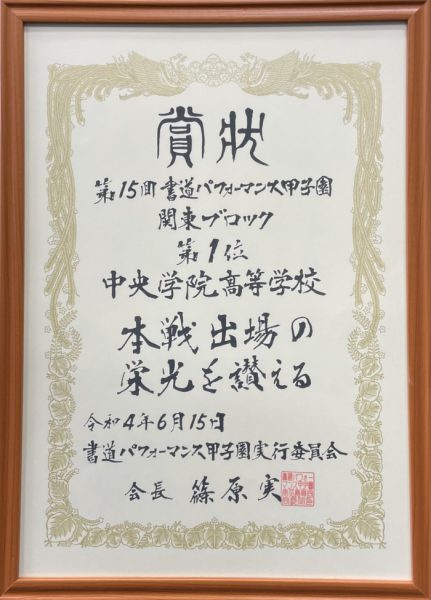 賞状
第15回書道パフォーマンス甲子園
関東ブロック
第1位
中央学院高等学校
本戦出場の
栄光を讃える
令和4年6月15日
書道パフォーマンス甲子園実行委員会
会長 篠原実